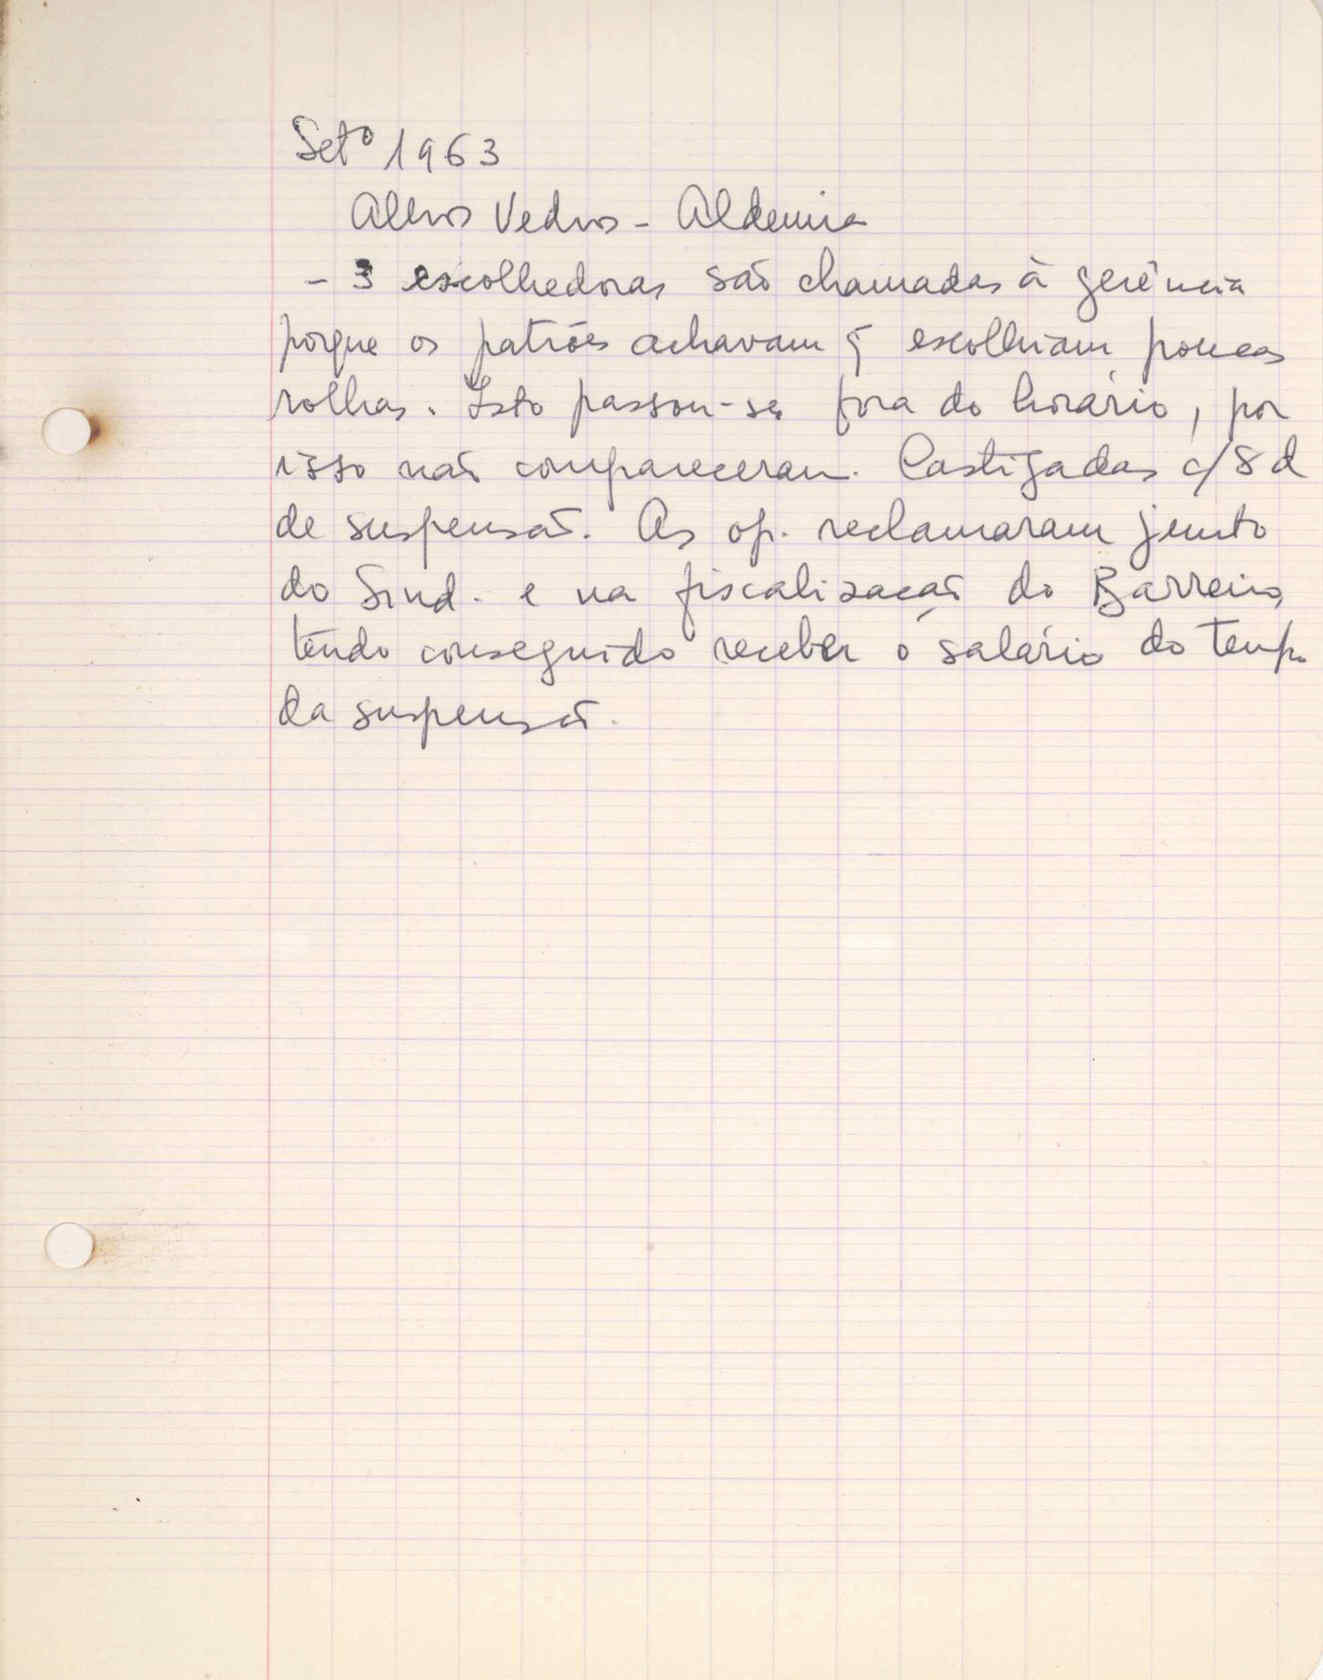 Setº 1963
Alhos Vedros - Aldemira
- 3 escolhedoras são chamadas à gerência
porque os patrões achavam q̃ escolhiam poucas
rolhas. Isto passou-se fora do horário, por
isso não compareceram. Castigadas c/ 8 d
de suspensão. As op. reclamaram junto
do Sind. e na fiscalização do Barreiro,
tendo conseguido receber o salário do tempo
da suspensão.